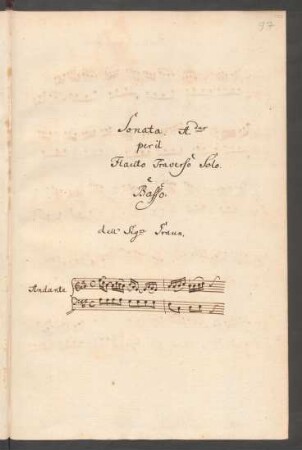 97
Sonata. A dur
per il
Flauto Traverso Solo.
e
Basso.
dell Sigr Graun.
Andante